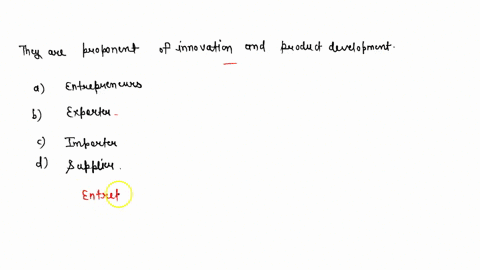 They are proponent of innovation and product development.
a) Entrepreneurs
b) Exporter
c) Importer
d) Supplier.
Entref